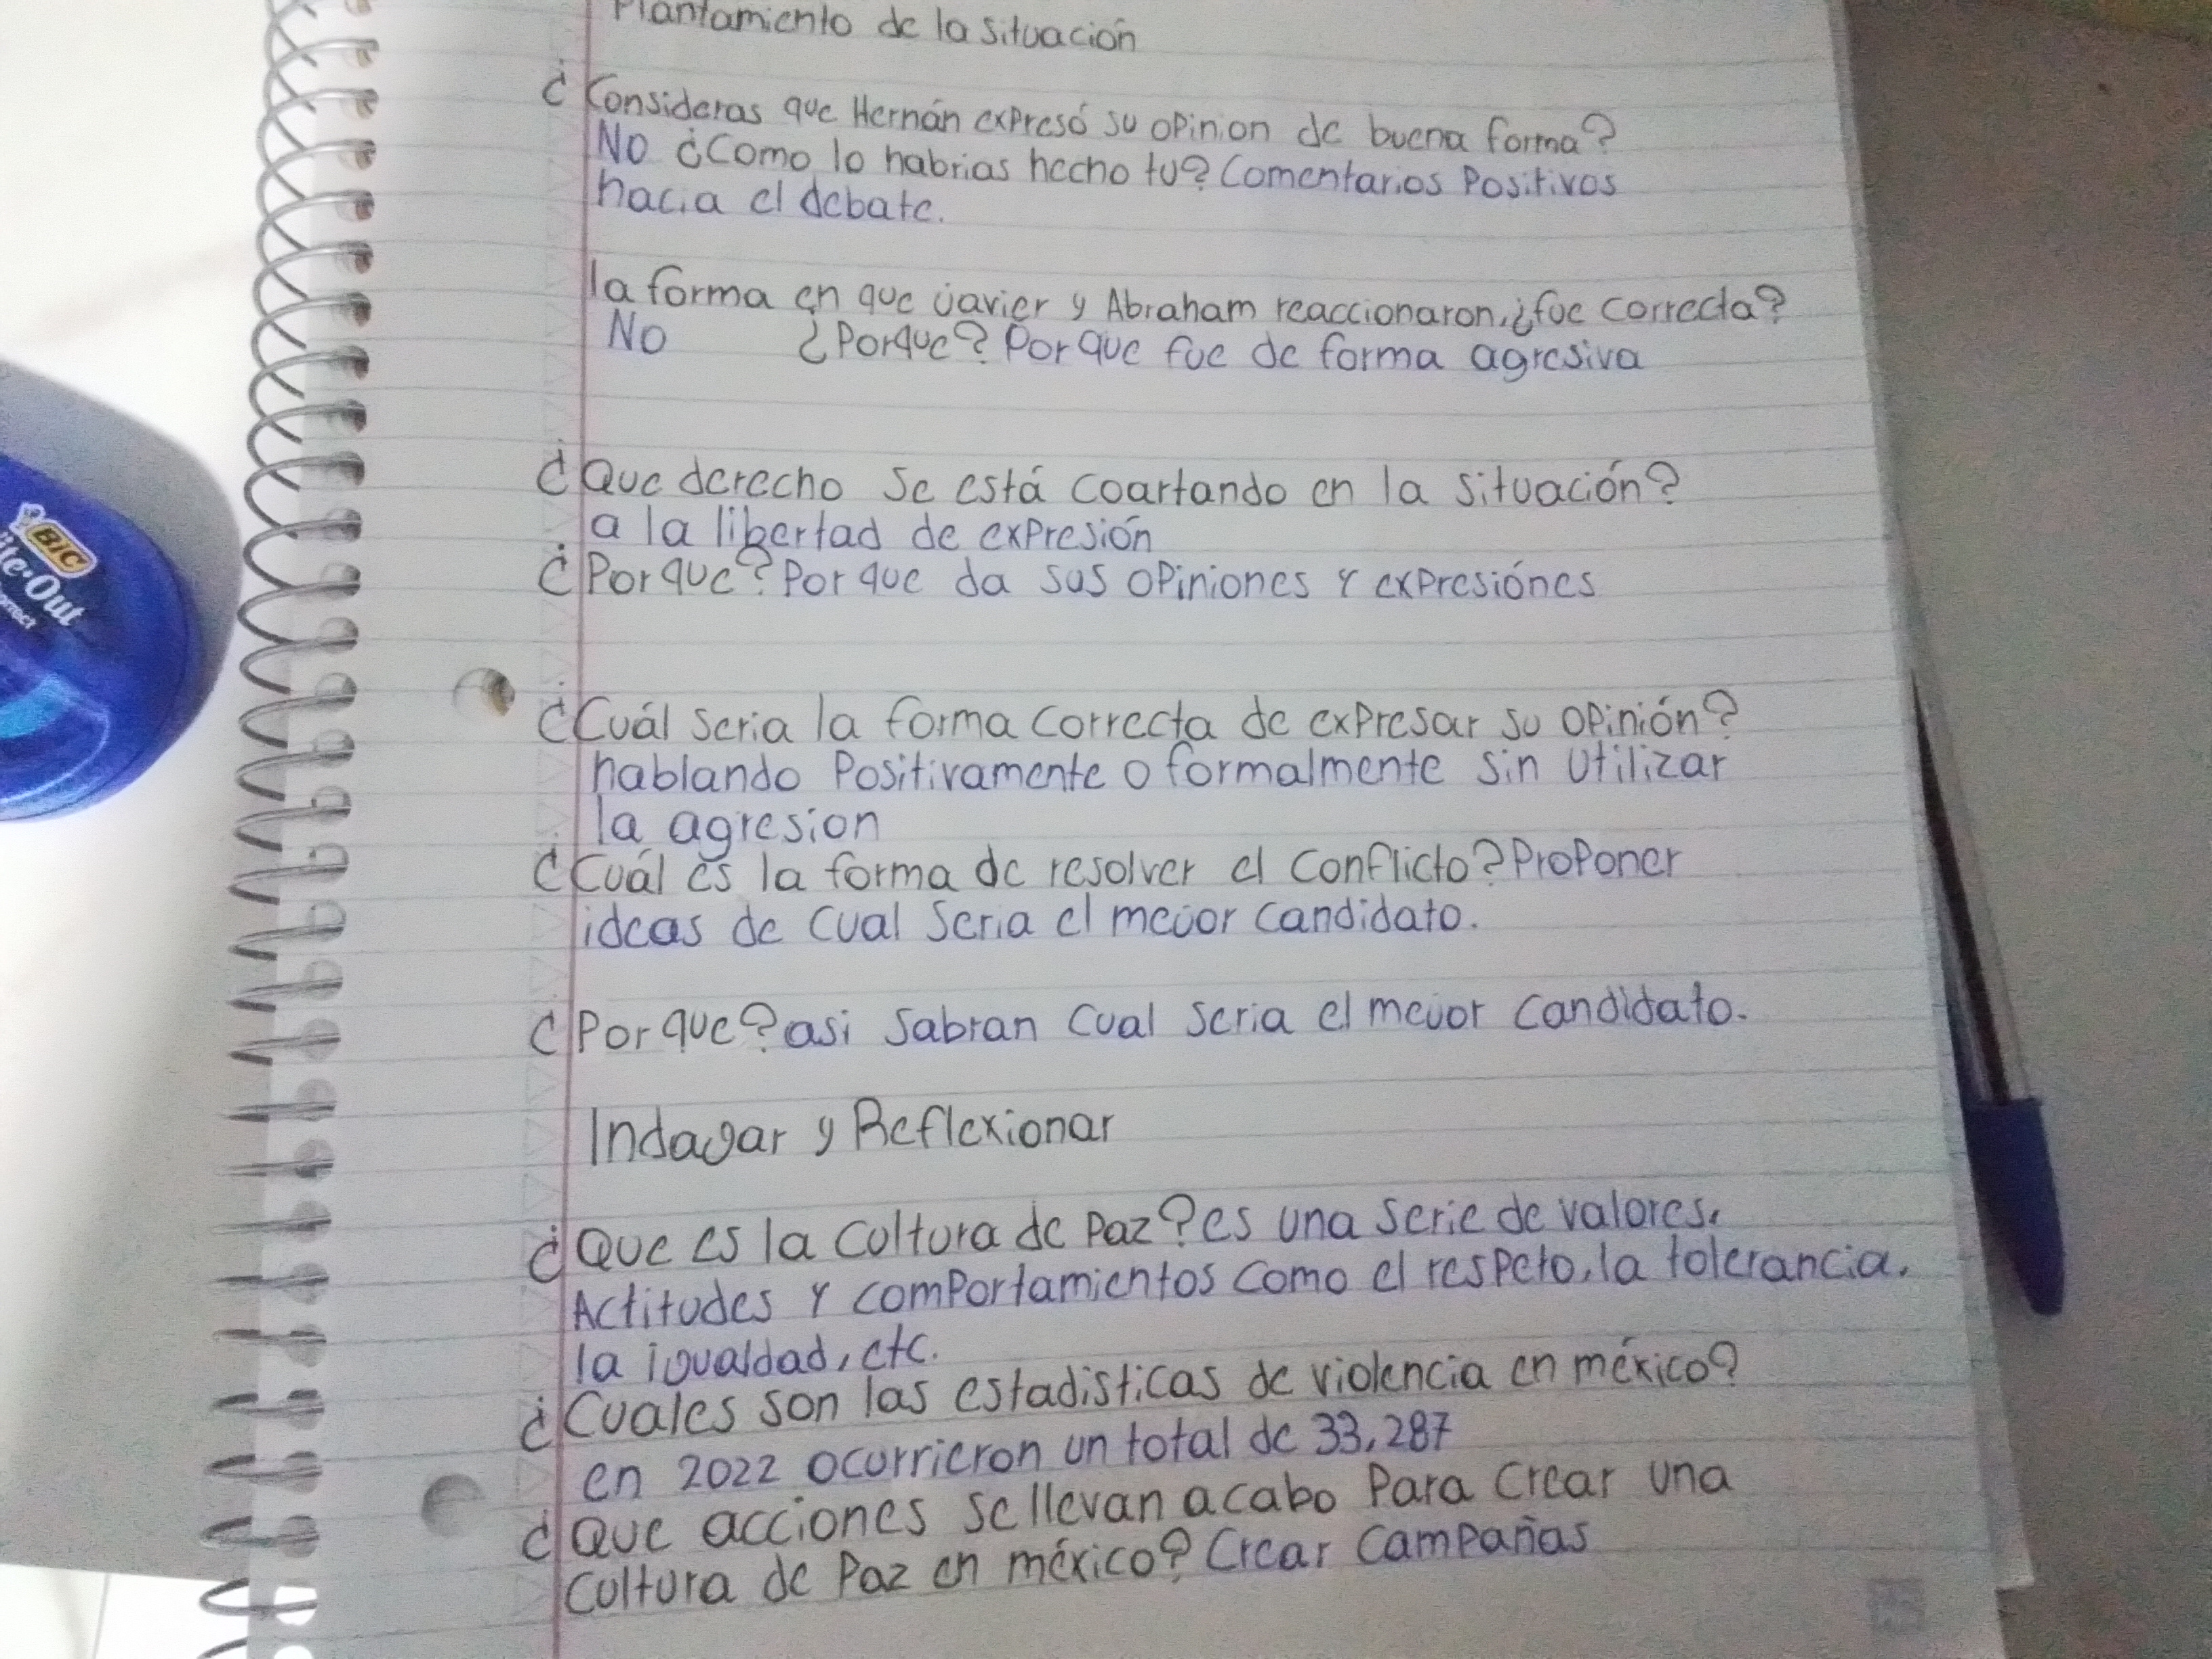 Plantamiento de la situación
¿Consideras que Hernán expresó su opinion de buena forma?
No ¿Como lo habrias hecho tu? Comentarios Positivos
hacia el debate.
la forma en que Javier y Abraham reaccionaron, ¿fue correcta?
No ¿Porque? Por que fue de forma agresiva
¿Que derecho se está coartando en la situación?
a la libertad de expresión
¿Por que? Por que da sus opiniones y expresiónes
¿Cuál seria la forma correcta de expresar su opinión?
hablando Positivamente o formalmente sin utilizar
la agresion
¿Cuál es la forma de resolver el conflicto? Proponer
ideas de cual seria el mejor candidato.
¿Por que? asi sabran cual seria el mejor candidato.
Indagar y Reflexionar
¿Que es la cultura de Paz? es una serie de valores,
Actitudes y comportamientos como el respeto, la tolerancia,
la igualdad, etc.
¿Cuales son las estadisticas de violencia en méxico?
en 2022 ocurrieron un total de 33,287
¿Que acciones se llevan acabo Para crear una
cultura de Paz en méxico? Crear campañas
BIC
ite·Out
orrect